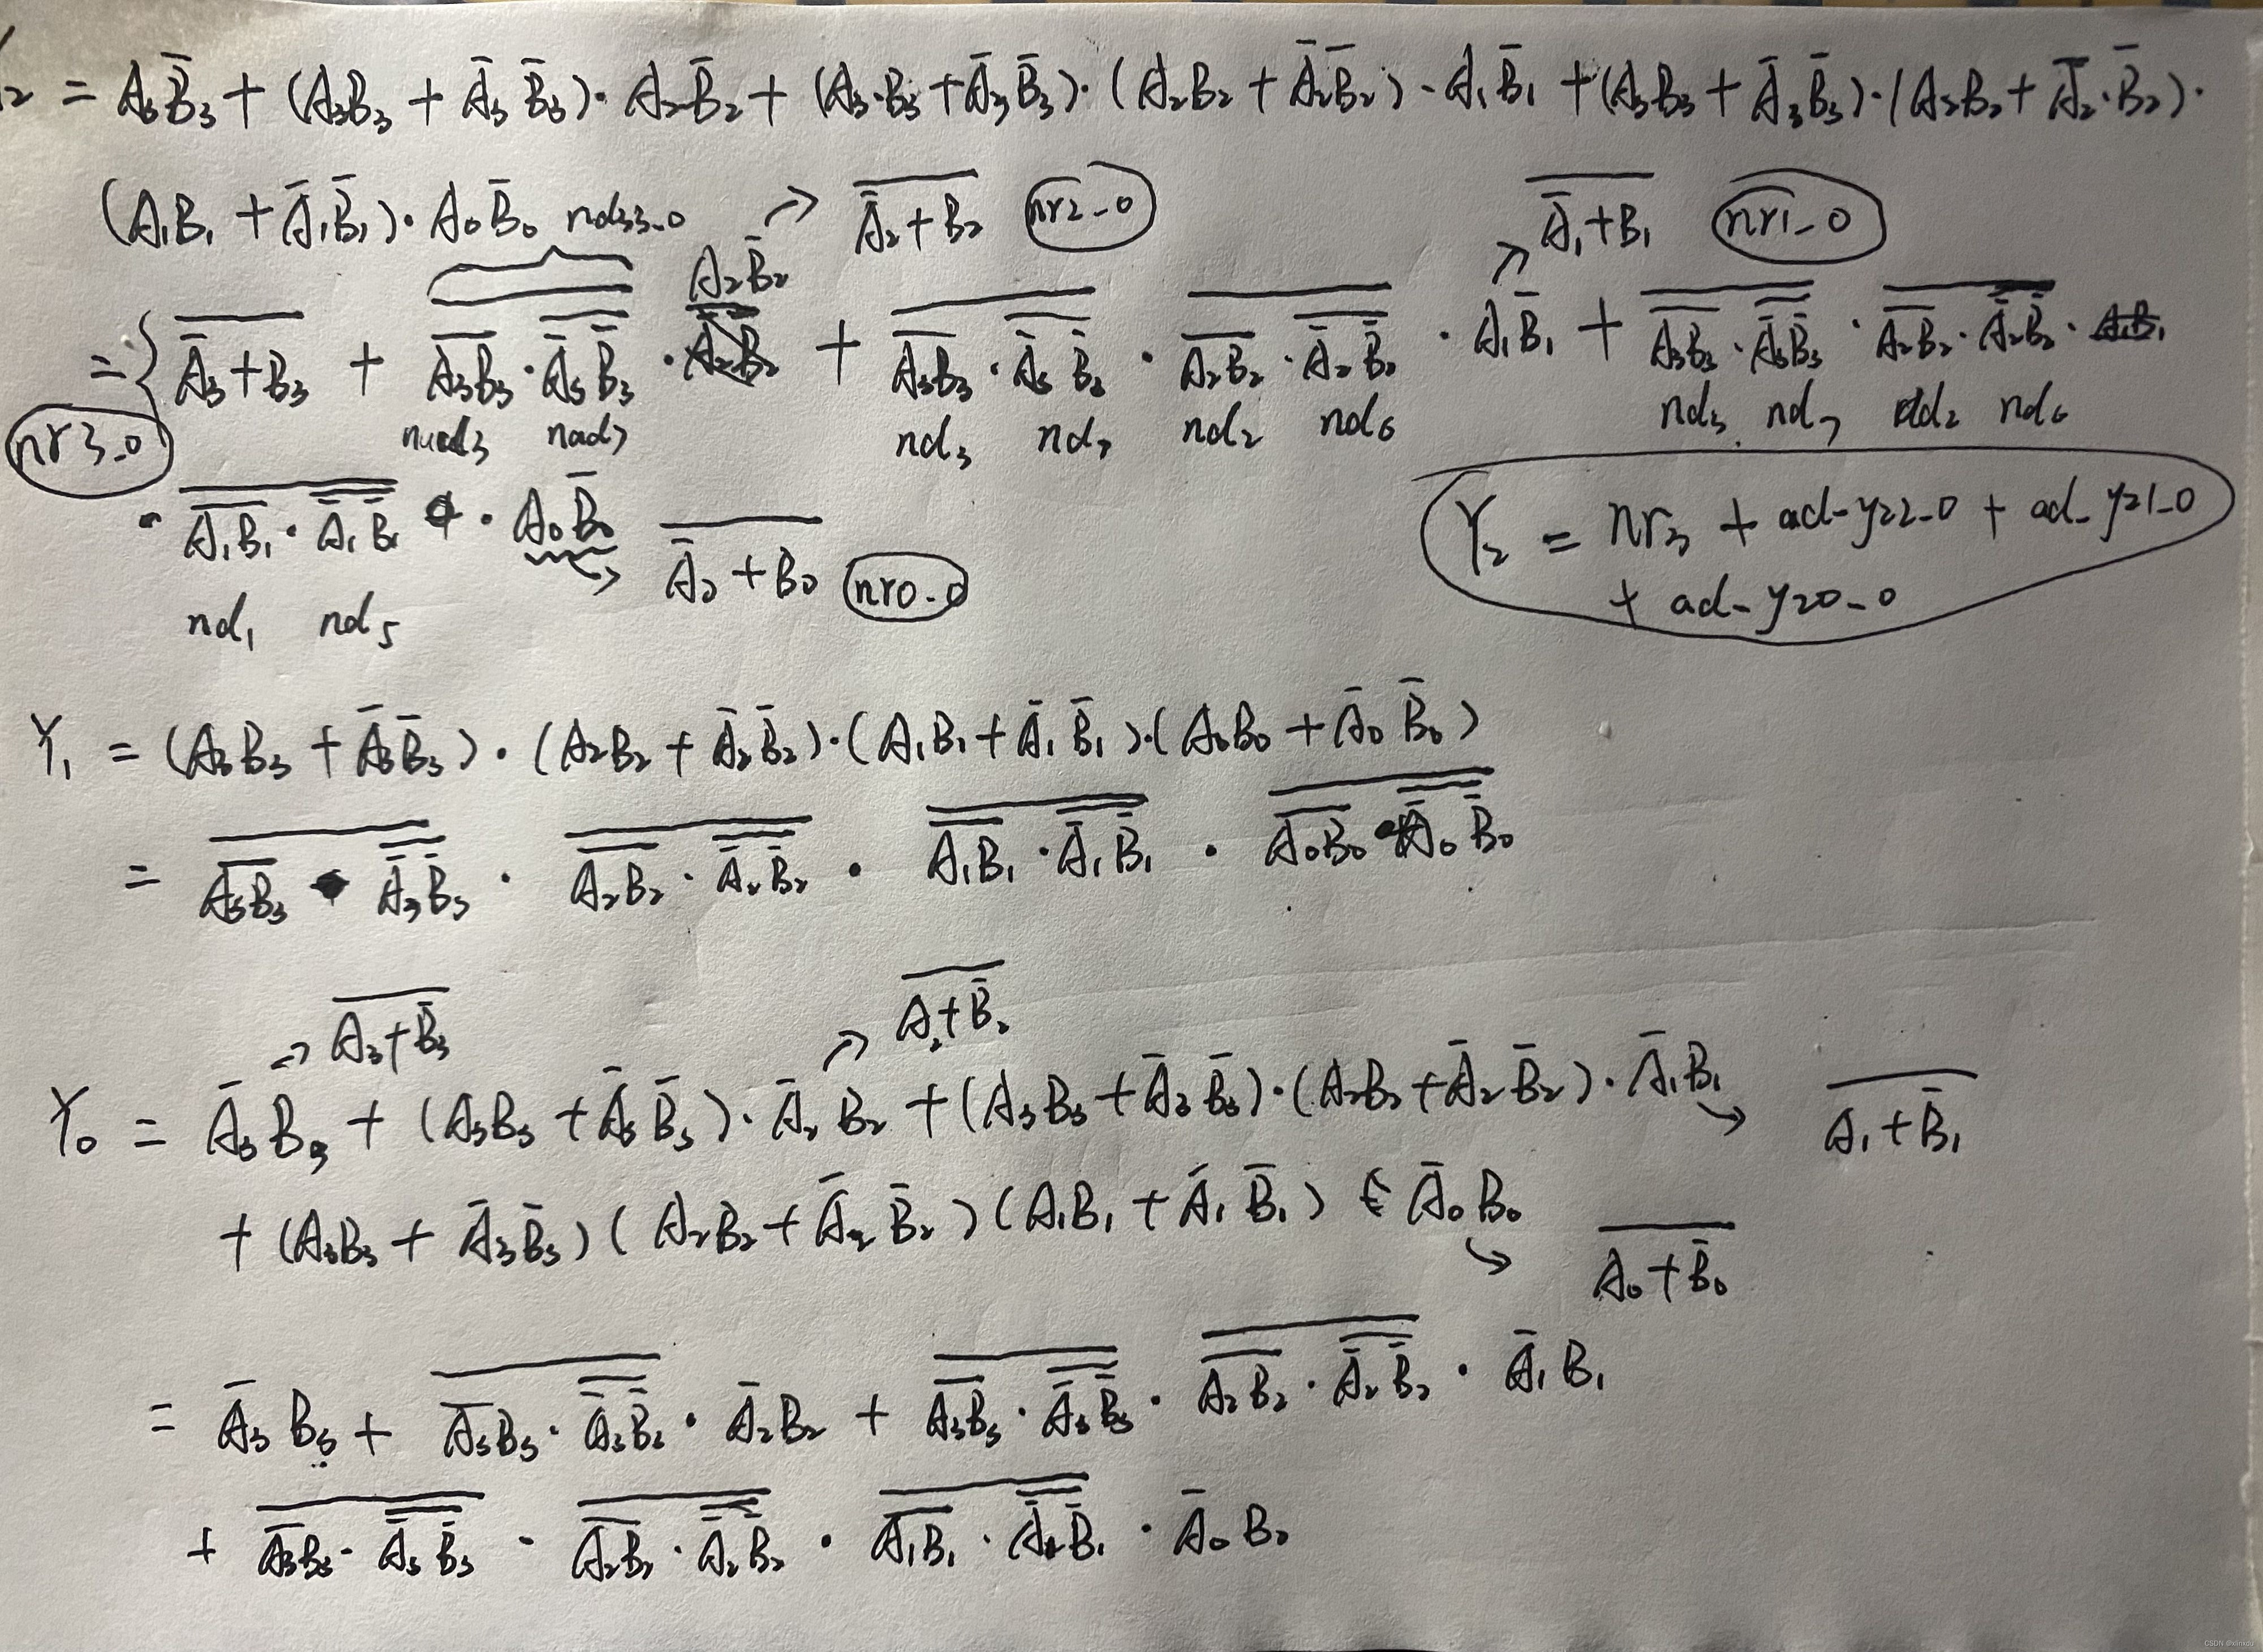 ₂ = A₃B̅₃ + (A₃B₃ + A̅₃B̅₃)·A₂B̅₂ + (A₃·B₃ + A̅₃B̅₃)·(A₂B₂ + A̅₂B̅₂)·A₁B̅₁ + (A₃B₃ + A̅₃B̅₃)·(A₂B₂ + A̅₂·B̅₂)·
(A₁B₁ + A̅₁B̅₁)·A₀B̅₀ nd33_0 → \overline{A̅₂+B₂} nr2_0 \overline{A̅₁+B₁} nr1_0
A₂B̅₂
= { \overline{A̅₃+B₃} + \overline{\overline{A₃B₃}·\overline{A̅₃B̅₃}}· + \overline{\overline{A₃B₃}·\overline{A̅₃B̅₃}}·\overline{\overline{A₂B₂}·\overline{A̅₂B̅₂}}·A₁B̅₁ + \overline{\overline{A₃B₃}·\overline{A̅₃B̅₃}}·\overline{\overline{A₂B₂}·\overline{A̅₂B̅₂}}·
nr3_0 nand3 nad7 nd₃ nd₇ nd₂ nd₆ nd₃ nd₇ nd₂ nd₆
·\overline{\overline{A₁B₁}·\overline{A̅₁B̅₁}}·A₀B̅₀ → \overline{A̅₀+B₀} nr0_0
nd₁ nd₅
Y₂ = nr₃ + ad-y22_0 + ad-y21_0
+ ad-y20_0
Y₁ = (A₃B₃ + A̅₃B̅₃)·(A₂B₂ + A̅₂B̅₂)·(A₁B₁ + A̅₁B̅₁)·(A₀B₀ + A̅₀B̅₀)
= \overline{\overline{A₃B₃}·\overline{A̅₃B̅₃}}·\overline{\overline{A₂B₂}·\overline{A̅₂B̅₂}}·\overline{\overline{A₁B₁}·\overline{A̅₁B̅₁}}·\overline{\overline{A₀B₀}·\overline{A̅₀B̅₀}}
→ \overline{A₃+B̅₃} → \overline{A₂+B̅₂}
Y₀ = A̅₃B₃ + (A₃B₃ + A̅₃B̅₃)·A̅₂B₂ + (A₃B₃ + A̅₃B̅₃)·(A₂B₂ + A̅₂B̅₂)·A̅₁B₁ → \overline{A₁+B̅₁}
+ (A₃B₃ + A̅₃B̅₃)(A₂B₂ + A̅₂B̅₂)(A₁B₁ + A̅₁B̅₁) A̅₀B₀ → \overline{A₀+B̅₀}
= A̅₃B₃ + \overline{\overline{A₃B₃}·\overline{A̅₃B̅₃}}·A̅₂B₂ + \overline{\overline{A₃B₃}·\overline{A̅₃B̅₃}}·\overline{\overline{A₂B₂}·\overline{A̅₂B̅₂}}·A̅₁B₁
+ \overline{\overline{A₃B₃}·\overline{A̅₃B̅₃}}·\overline{\overline{A₂B₂}·\overline{A̅₂B̅₂}}·\overline{\overline{A₁B₁}·\overline{A̅₁B̅₁}}·A̅₀B₀